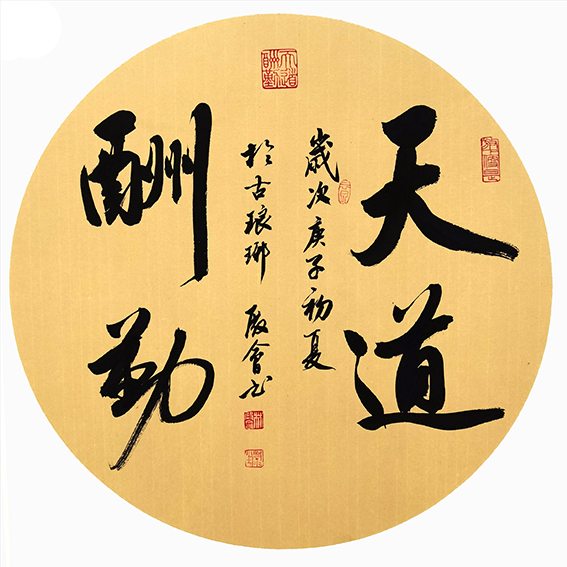 天道
歲次庚子初夏
於古琅琊
酬勤